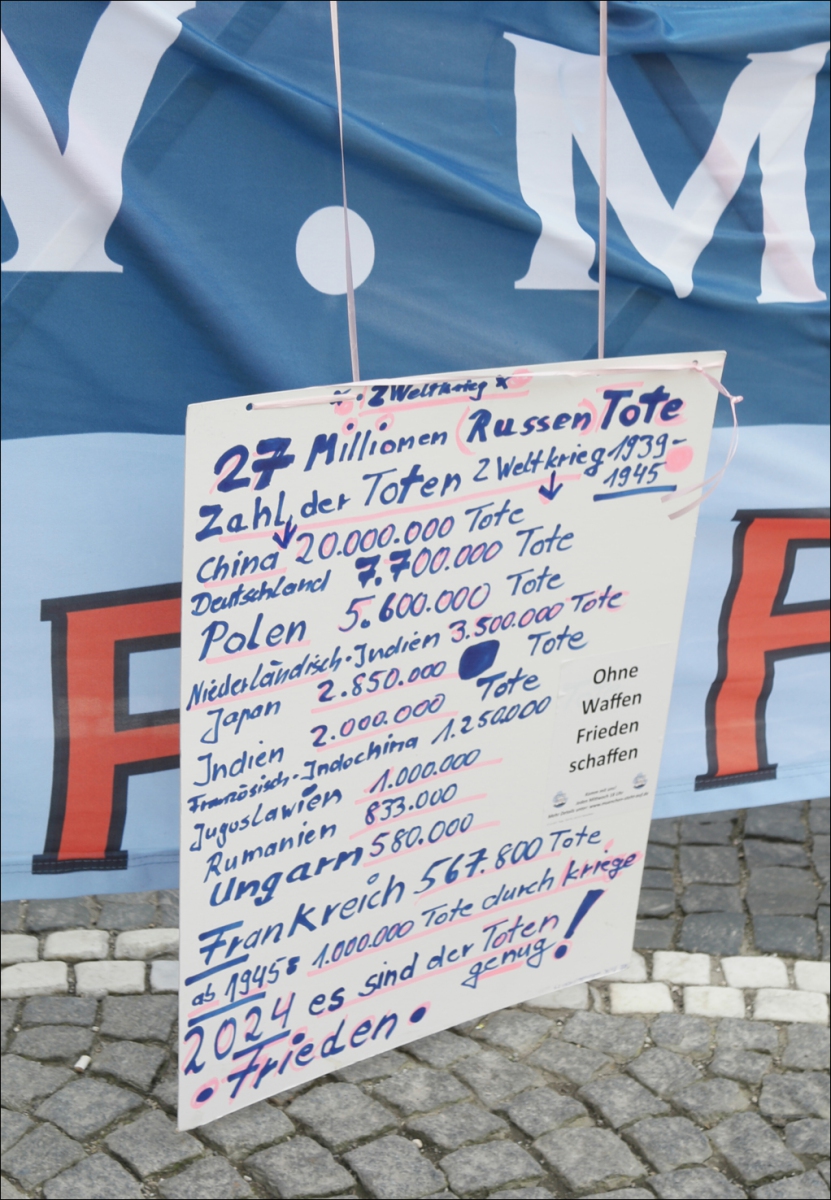 V . M
F F
2 Weltkrieg
27 Millionen (Russen) Tote
Zahl der Toten 2 Weltkrieg 1939-
1945
China 20.000.000 Tote
Deutschland 7.700.000 Tote
Polen 5.600.000 Tote
Niederländisch-Indien 3.500.000 Tote
Japan 2.850.000 Tote
Indien 2.000.000 Tote
Französisch-Indochina 1.250.000
Jugoslawien 1.000.000
Rumanien 833.000
Ungarn 580.000
Frankreich 567.800 Tote
ab 1945: 1.000.000 Tote durch kriege
2024 es sind der Toten
genug!
• Frieden •
Ohne
Waffen
Frieden
schaffen